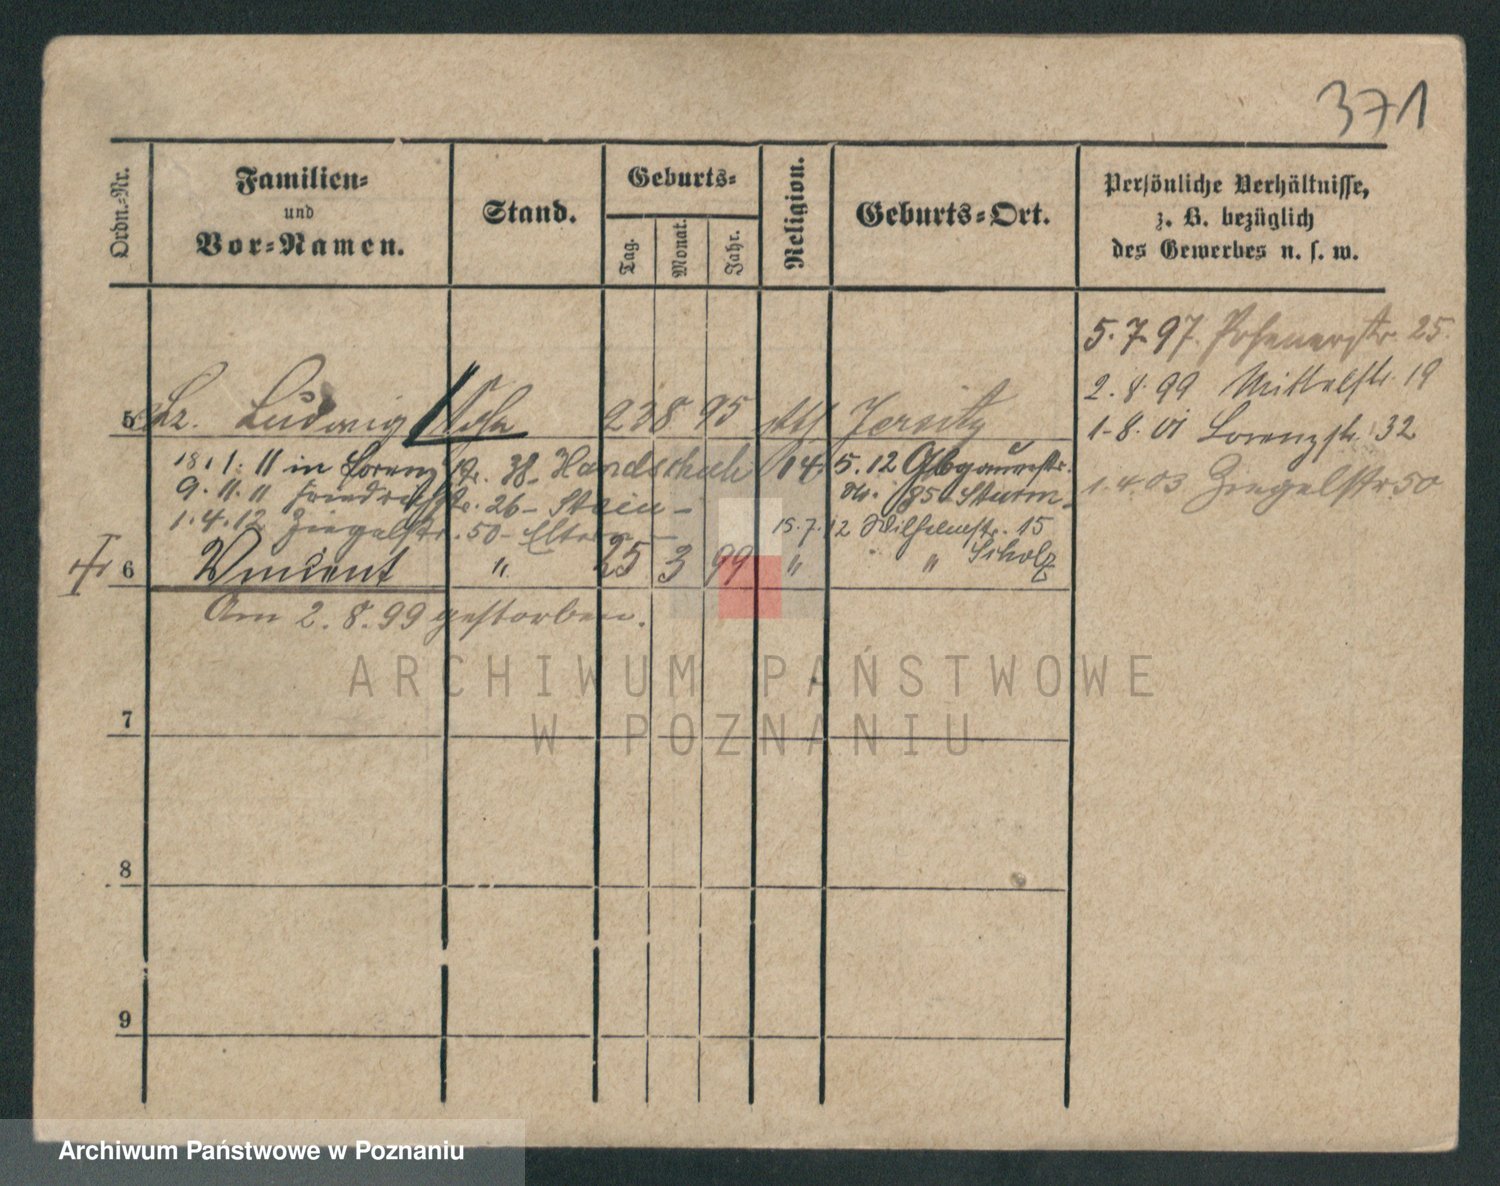 371
Ordn.-Nr.
Familien-
und
Vor-Namen.
Stand.
Geburts-
Tag.
Monat.
Jahr.
Religion.
Geburts-Ort.
Persönliche Verhältnisse,
z. B. bezüglich
des Gewerbes u. s. w.
5.7.97. Posenerstr. 25.
2.8.99 Mittelstr. 19
1.8.01 Lorenzstr. 32
1.4.03 Ziegelstr. 50
5 Ludwig Sohn 23 8 95 kth Jersitz
18.1.11 in Lorenzstr. 38 - Handschuh
9.11.11 Friedrichstr. 26 - Stein -
1.4.12 Ziegelstr. 50 - Eltern -
14.5.12 Glogauerstr.
85 Sturm -
15.7.12 Wilhelmstr. 15
Scholz
6 Vincent " 25 3 99 " "
Am 2.8.99 gestorben.
7
8
9
ARCHIWUM PAŃSTWOWE
W POZNANIU
Archiwum Państwowe w Poznaniu